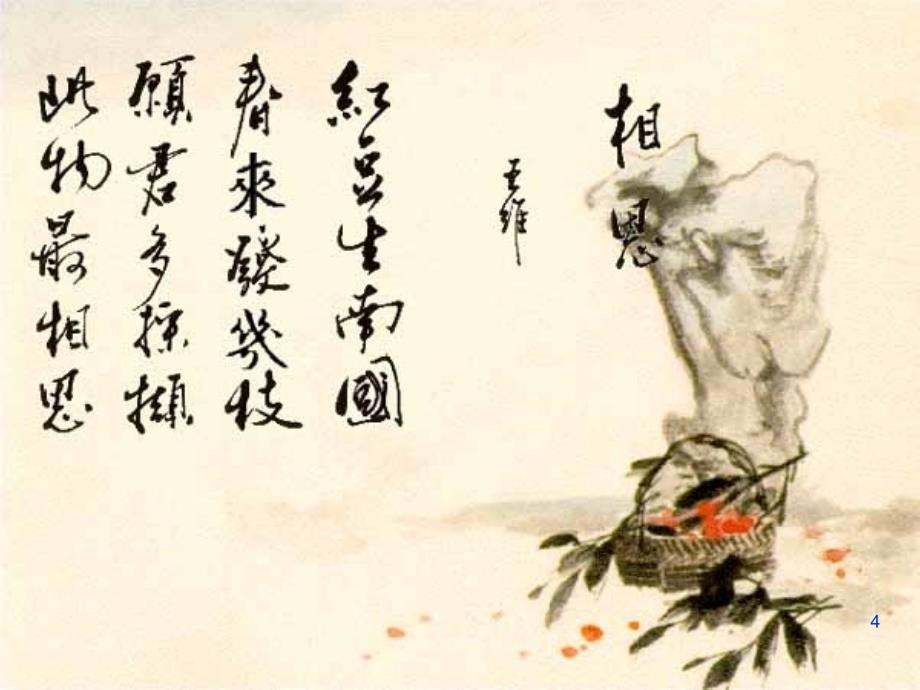 相思
王維
紅豆生南國
春來發幾枝
願君多採擷
此物最相思
4